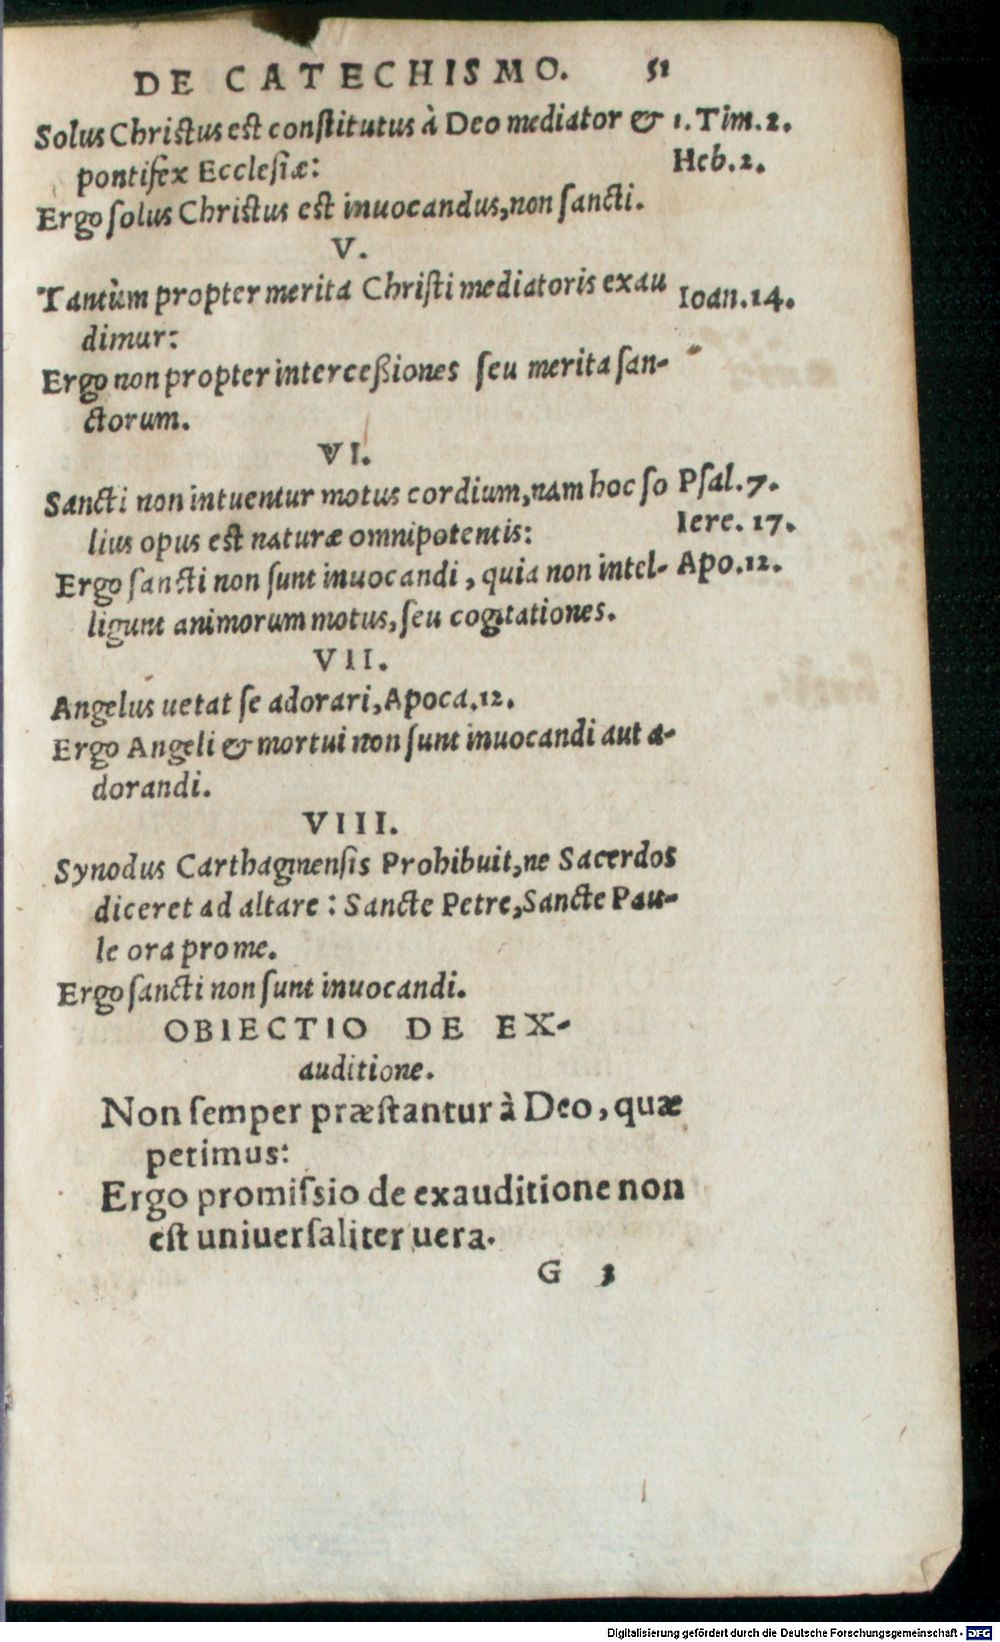 DE CATECHISMO. 51
Solus Christus est constitutus à Deo mediator & 1. Tim. 2.
pontifex Ecclesiæ: Heb. 2.
Ergo solus Christus est inuocandus, non sancti.
V.
Tantùm propter merita Christi mediatoris exau Ioan. 14.
dimur:
Ergo non propter interceßiones seu merita san-
ctorum.
VI.
Sancti non intuentur motus cordium, nam hoc so Psal. 7.
lius opus est naturæ omnipotentis: Iere. 17.
Ergo sancti non sunt inuocandi, quia non intel- Apo. 12.
ligunt animorum motus, seu cogitationes.
VII.
Angelus uetat se adorari, Apoca. 12.
Ergo Angeli & mortui non sunt inuocandi aut a-
dorandi.
VIII.
Synodus Carthaginensis Prohibuit, ne Sacerdos
diceret ad altare: Sancte Petre, Sancte Pau-
le ora pro me.
Ergo sancti non sunt inuocandi.
OBIECTIO DE EX-
auditione.
Non semper præstantur à Deo, quæ
petimus:
Ergo promissio de exauditione non
est uniuersaliter uera.
G 3
Digitalisierung gefördert durch die Deutsche Forschungsgemeinschaft - DFG